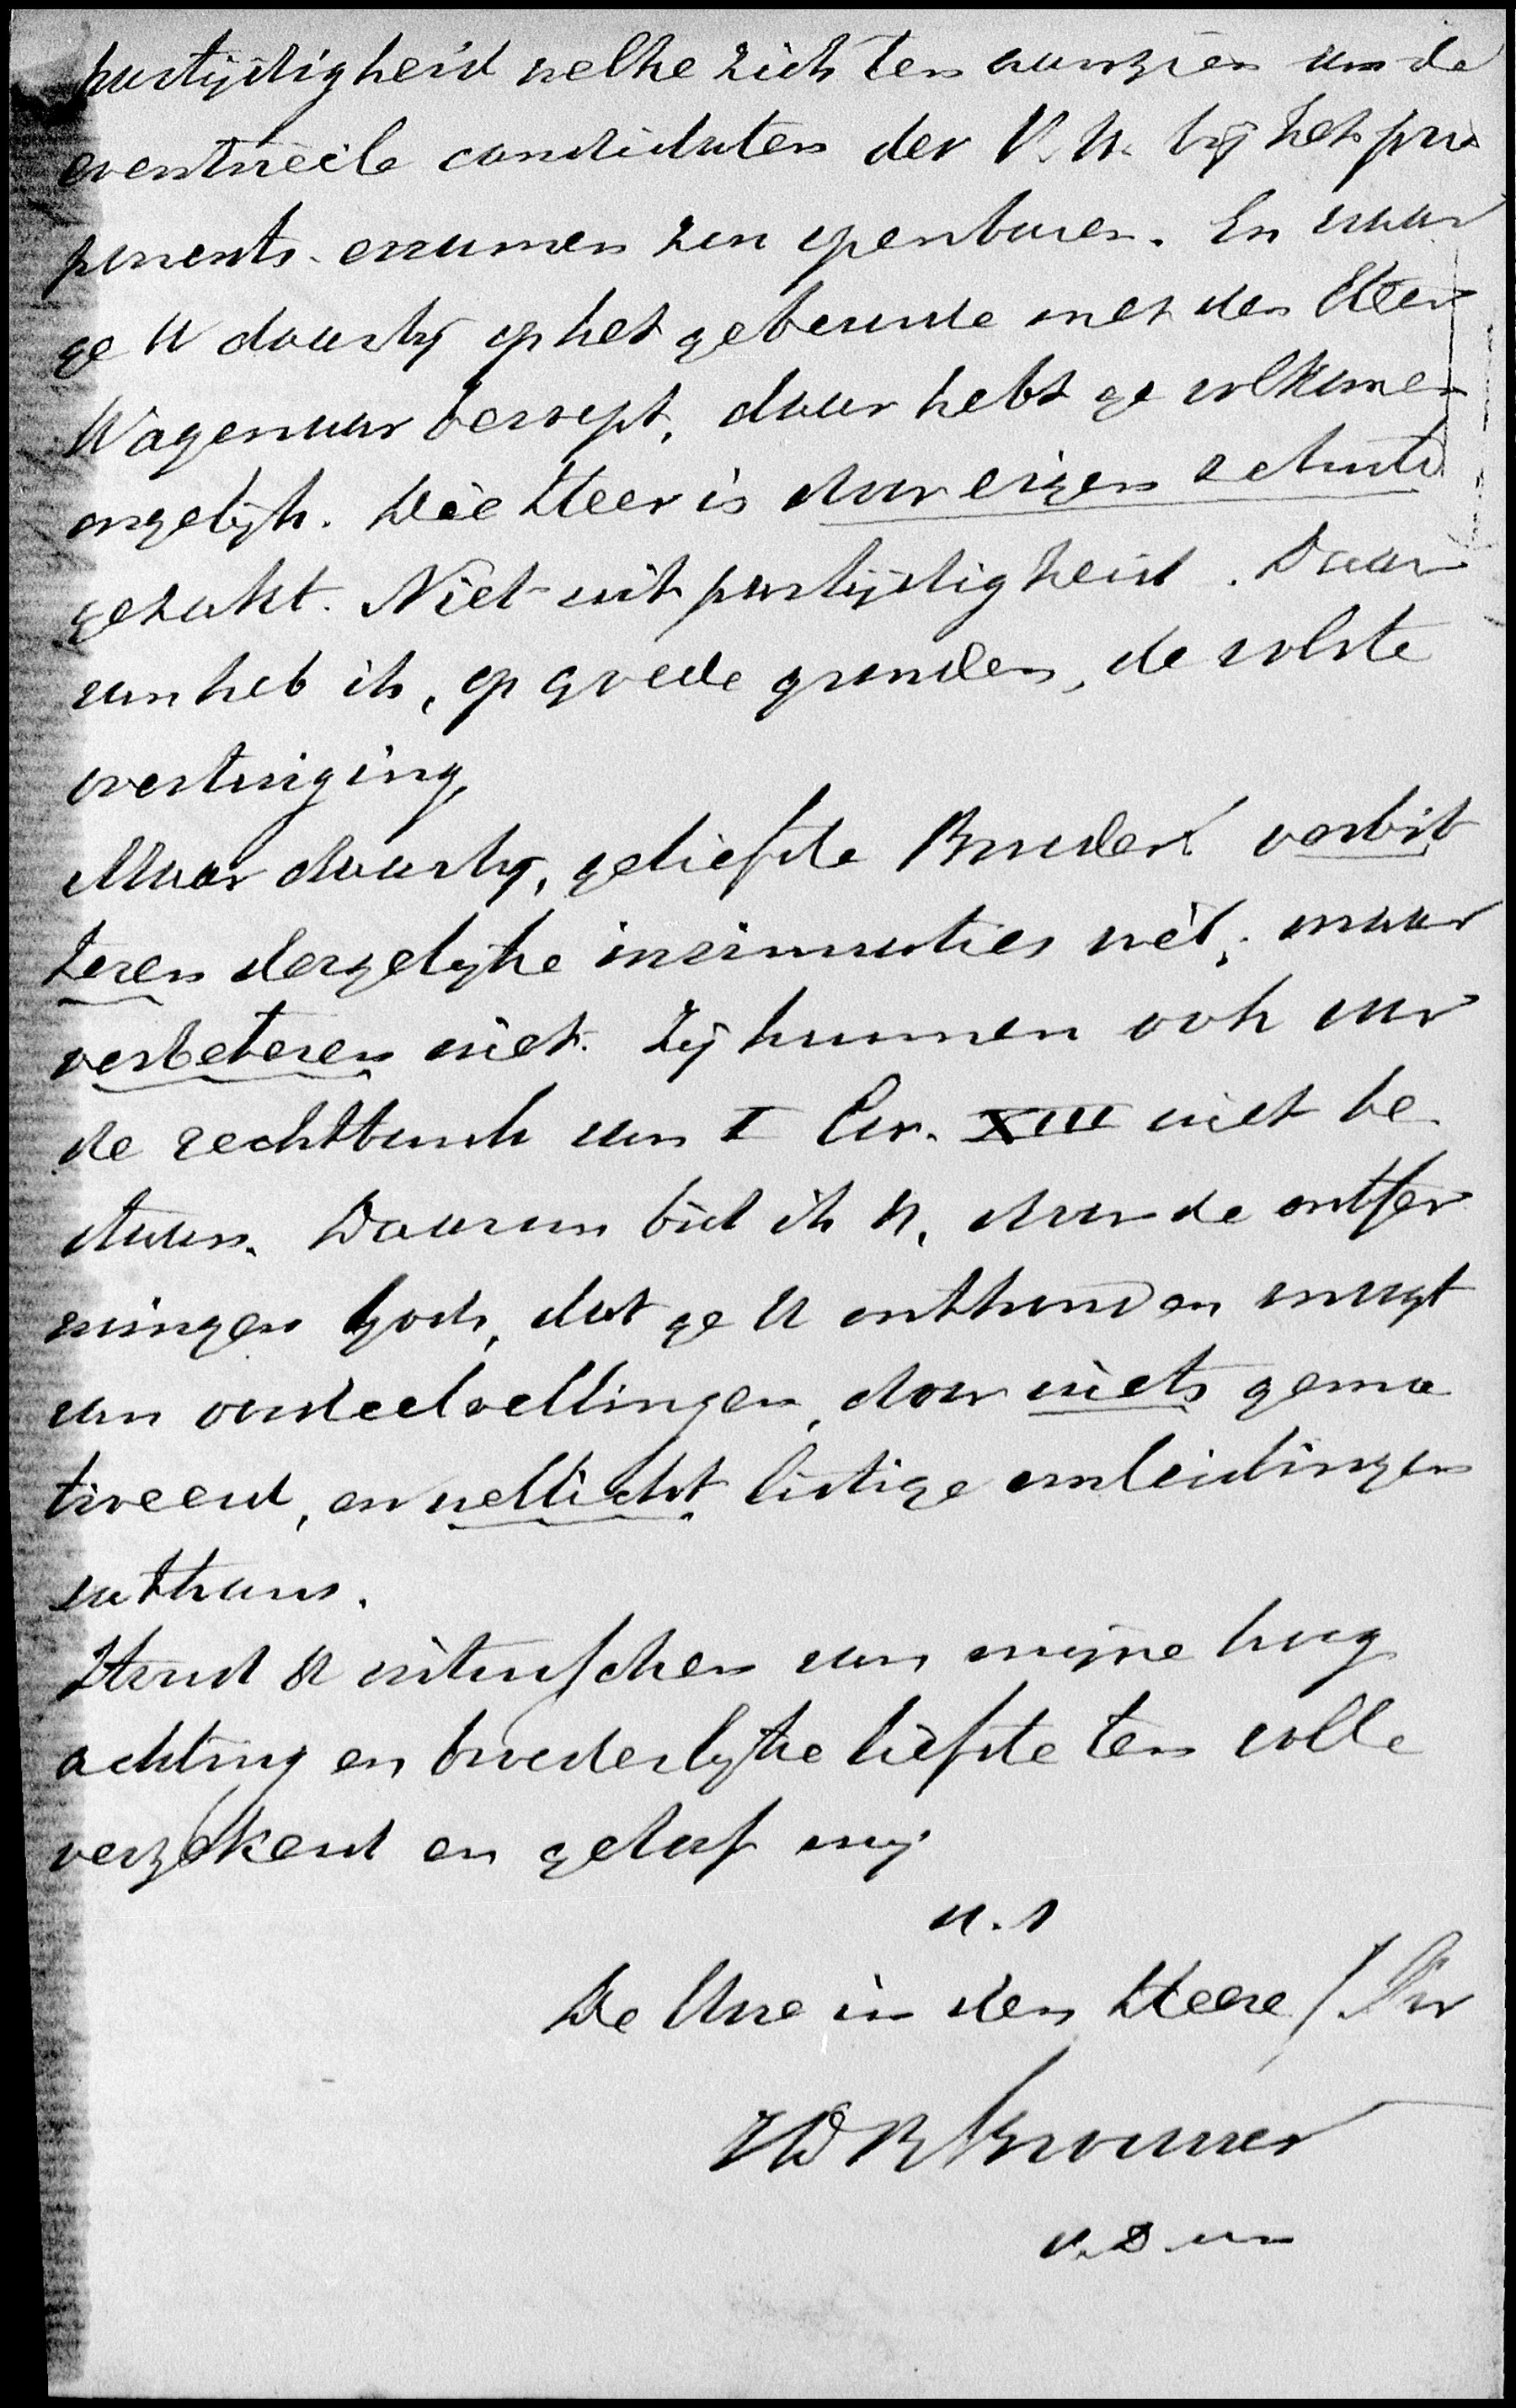 partijdigheid welke zich ten aanzien van de
eventueele candidaten der V. U. bij het pro
ponents-examen zou openbaren. En waar
ge U daarbij op het gebeurde met den Heer
Wagenaar beroept, daar hebt ge volkomen
ongelijk. Die Heer is door eigen schuld
gezakt. Niet uit partijdigheid. Daar
van heb ik, op goede gronden, de volste
overtuiging.
Maar daarbij, geliefde Broeder! verbit
teren dergelijke insinuaties wèl, maar
verbeteren niet. Zij kunnen ook voor
de rechtbank van I Cor. XIII niet be
staan. Daarom bid ik U, door de ontfer
mingen Gods, dat ge U onthouden moogt
van oordeelvellingen, door niets gemo
tiveerd, en wellicht lustige
uitthans.
Houd U intusschen van mijne hoog
achting en broederlijke liefde ten volle
verzekerd en geloof mij
n. s
De Uwe in den Heere
Brouwer
v. D. m